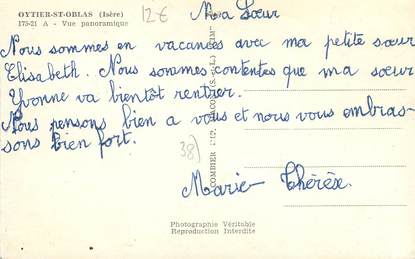 OYTIER-ST-OBLAS (Isère)
175-21 A - Vue panoramique
12€
Ma Sœur
Nous sommes en vacances avec ma petite sœur
Elisabeth. Nous sommes contentes que ma sœur
Yvonne va bientôt rentrer.
Nous pensons bien a vous et nous vous embras-
sons bien fort.
38)
Marie-Thérèse.
COMBIER IMP. MACON (S.-&-L.)
Photographie Véritable
Reproduction Interdite